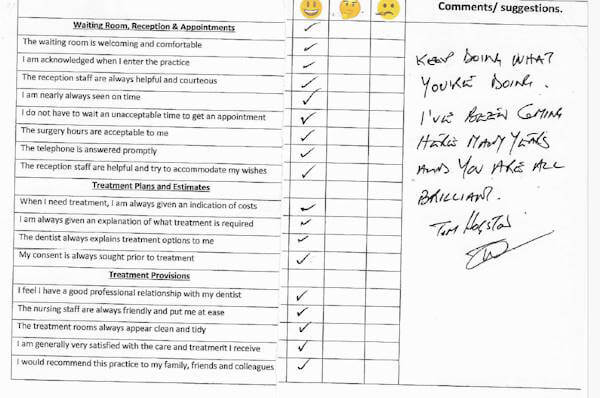 Comments/ suggestions.
Waiting Room, Reception & Appointments
The waiting room is welcoming and comfortable
I am acknowledged when I enter the practice
The reception staff are always helpful and courteous
I am nearly always seen on time
I do not have to wait an unacceptable time to get an appointment
The surgery hours are acceptable to me
The telephone is answered promptly
The reception staff are helpful and try to accommodate my wishes
Treatment Plans and Estimates
When I need treatment, I am always given an indication of costs
I am always given an explanation of what treatment is required
The dentist always explains treatment options to me
My consent is always sought prior to treatment
Treatment Provisions
I feel I have a good professional relationship with my dentist
The nursing staff are always friendly and put me at ease
The treatment rooms always appear clean and tidy
I am generally very satisfied with the care and treatment I receive
I would recommend this practice to my family, friends and colleagues
KEEP DOING WHAT
YOU'RE DOING.
I'VE BEEN COMING
HERE MANY YEARS
AND YOU ARE ALL
BRILLIANT.